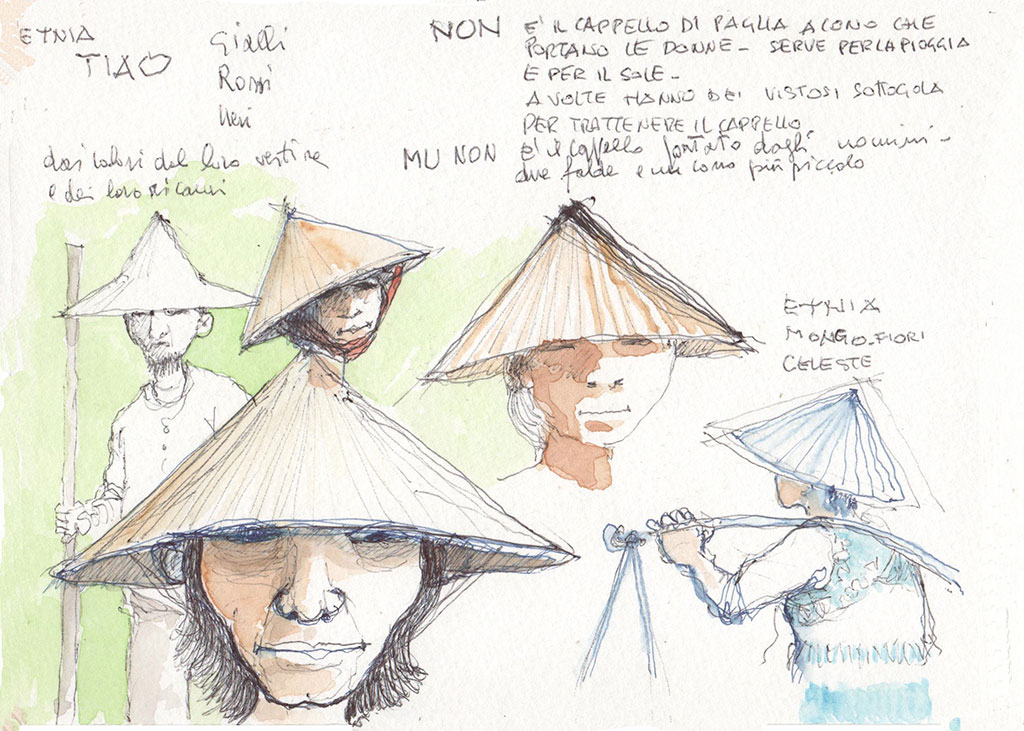 ETNIA
TIAO
Gialli
Rossi
Neri
dai colori del loro vestire
e dei loro ricami
NON È IL CAPPELLO DI PAGLIA A CONO CHE
PORTANO LE DONNE - SERVE PER LA PIOGGIA
E PER IL SOLE -
A VOLTE HANNO DEI VISTOSI SOTTOGOLA
PER TRATTENERE IL CAPPELLO
MU NON è il cappello portato dagli uomini -
due falde e un cono più piccolo
ETNIA
MONGO-FIORI
CELESTE